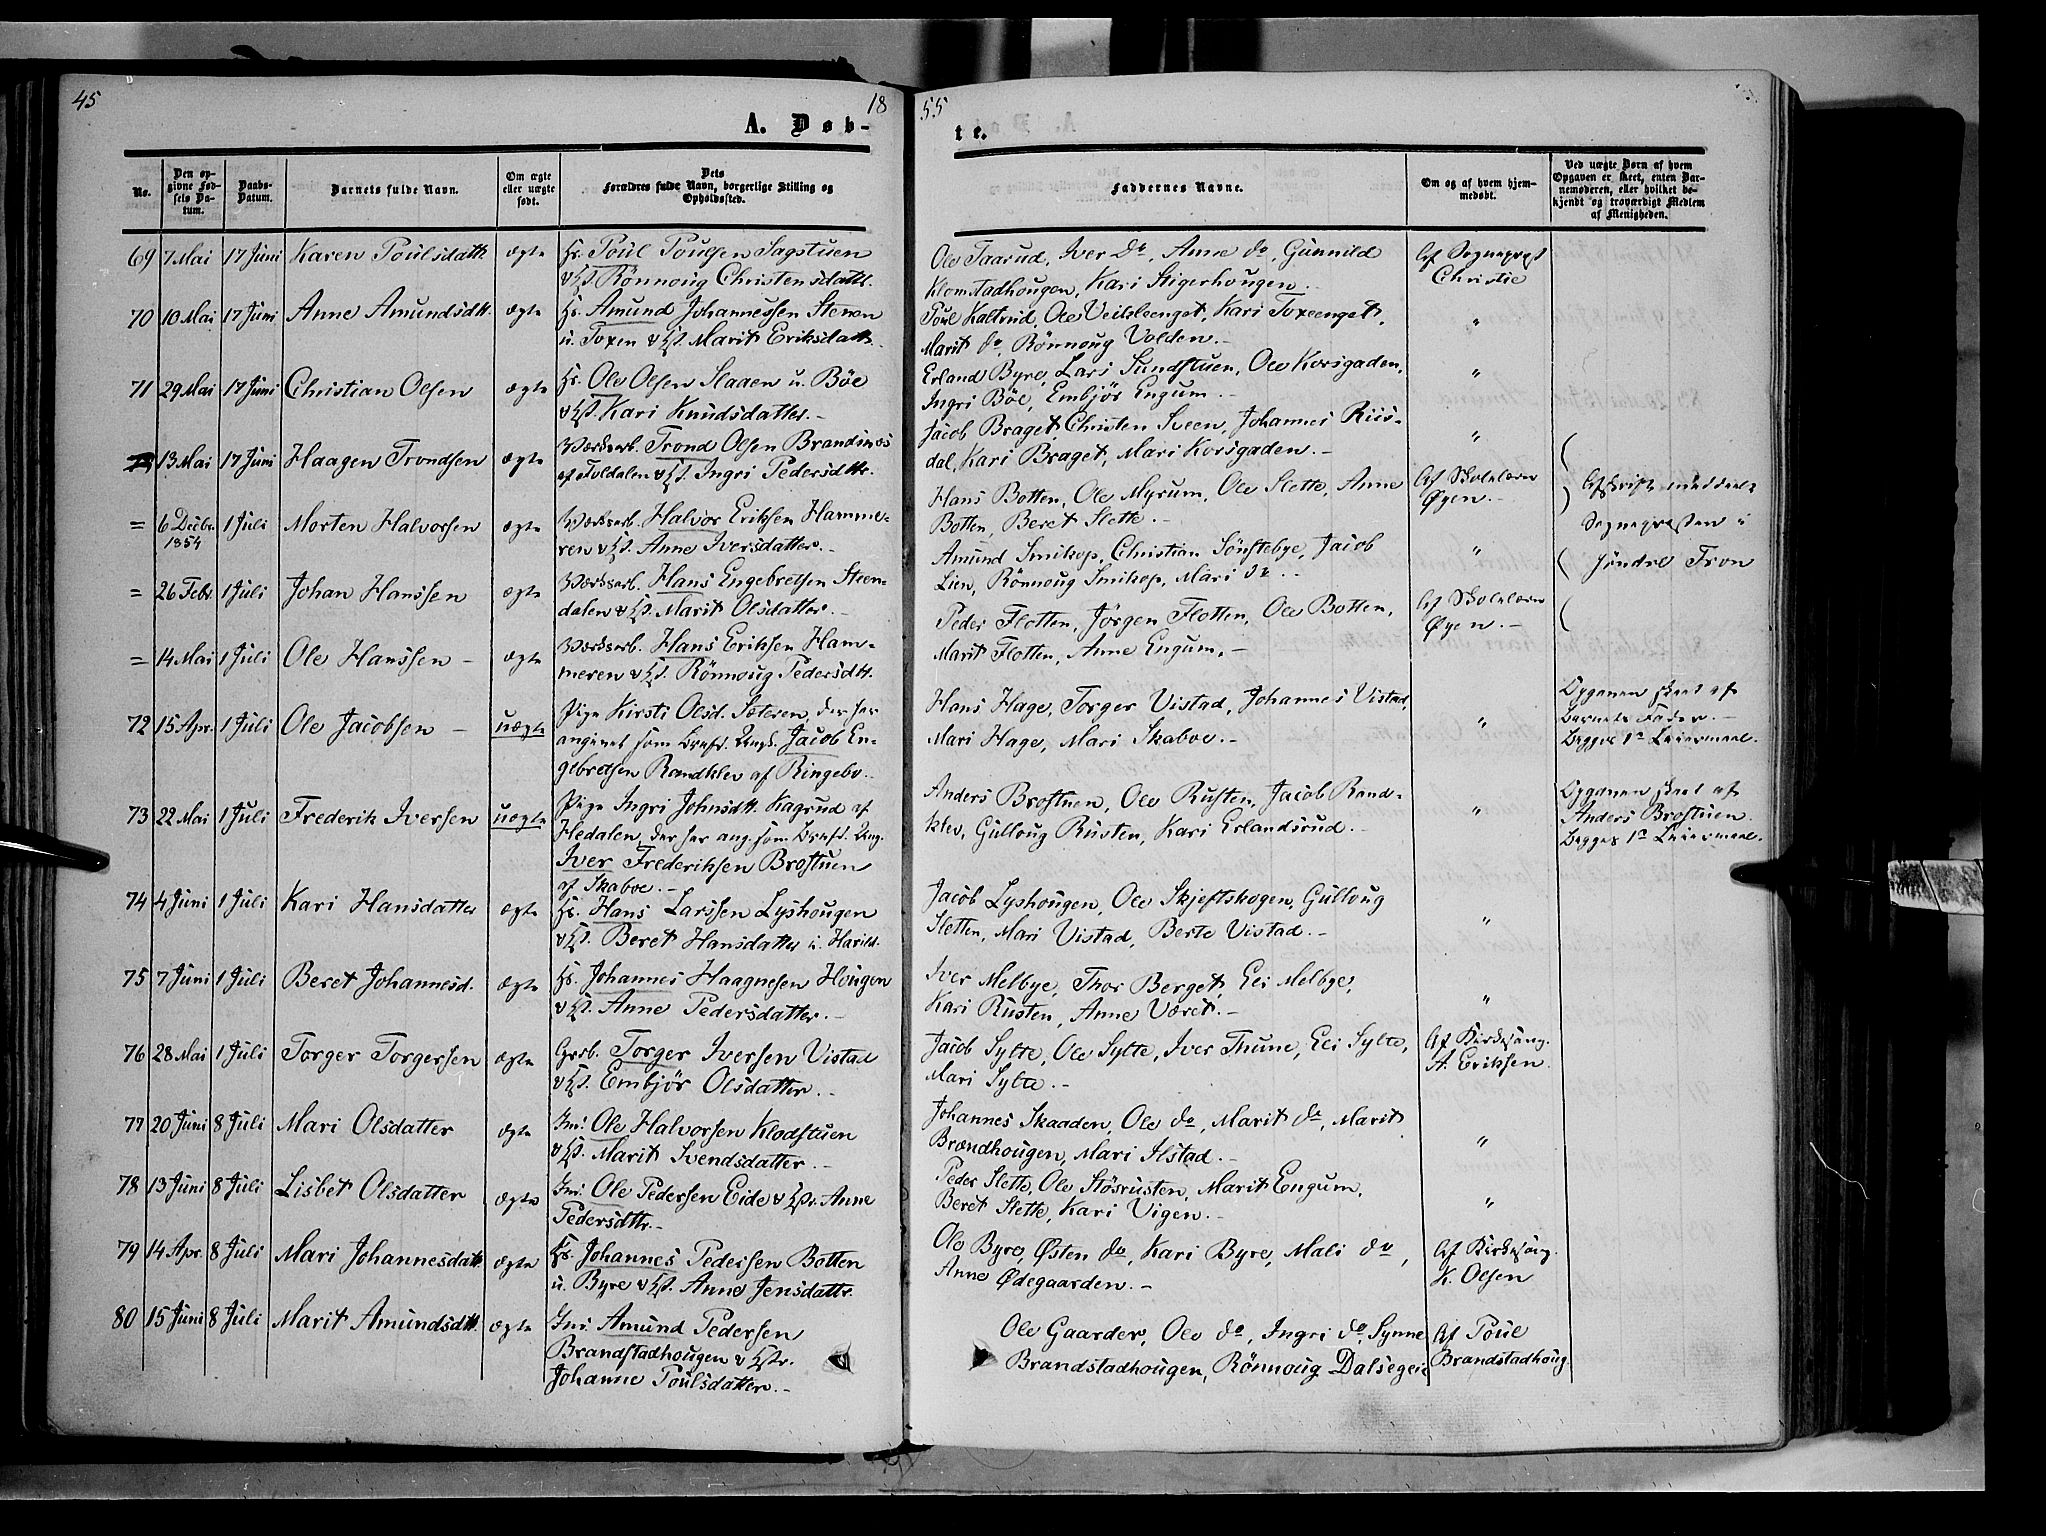 45
18
55
A. Døb-
te.
No.
Den op-
givne Fød-
sels Da-
tum.
Daabs-
Datum.
Barnets fulde Navn.
Om ægte
eller uægte
født.
Dets
Forældres fulde Navn, borgerlige Stilling og
Opholdssted.
Faddernes Navne.
Om og af hvem hjem-
medøbt.
Ved uægte Børn af hvem
Opgaven er skeet, enten Bar-
nemoderen, eller hvilket be-
kjendt og troværdigt Medlem
af Menigheden.
69 7 Mai 17 Juni Karen Poulsdatt. ægte Hs. Poul Poulsen Sagstuen
& Hst. Rönnoug Christensdatt.
Ole Taarud, Iver do, Anne do, Gunnild
Klomstadhougen, Kari Stigerhougen.
Af Sognepræst
Christie
70 10 Mai 17 Juni Anne Amundsdtt. ægte Hs. Amund Johannessen Stenen
u. Toxen & Hst. Marit Eriksdatt.
Poul Kaltrud, Ole Veiksleenget, Kari Toxeenget,
Marit do, Rönnoug Volden.-
"
71 29 Mai 17 Juni Christian Olsen ægte Hs. Ole Olsen Slaaen u. Böe
& Hst. Kari Knudsdatter.-
Erland Byre, Lars Sundstuen, Ole Korsgaden,
Ingri Böe, Embjör Engum.-
"
13 Mai 17 Juni Haagen Trondsen ægte Værksarb. Trond Olsen Brandsnæs
af Foldalen & Hst. Ingri Pedersdttr.
Jacob Braget, Christen Sveen, Johannes Riis-
dal, Kari Braget, Mari Korsgaden.-
"
= 6 Decbr.
1854
1 Juli Morten Halvorsen ægte Værksarb. Halvor Eriksen Hamme-
ren & Hst. Anne Iversdatter.-
Hans Botten, Ole Myrum, Ole Slette, Anne
Botten, Beret Slette.-
Af Skolelærer
Øyen.-
Afskrift meddeelt
Sognepræsten i
Söndre Fron
= 26 Febr. 1 Juli Johan Hanssen ægte Værksarb. Hans Engebretsen Steen-
dalen & Hst. Marit Olsdatter.-
Amund Smikop, Christian Sönstebye, Jacob
Lien, Rönnoug Smikop, Mari do.-
"
= 14 Mai 1 Juli Ole Hanssen - ægte Værksarb. Hans Eriksen Ham-
meren & Hst. Rönnoug Pedersdtt.
Peder Flotten, Jörgen Flotten, Ole Botten,
Marit Flotten, Anne Engum.-
Af Skolelærer
Øyen.-
72 15 Apr. 1 Juli Ole Jacobsen - uægte Pige Kirsti Olsd. Sæteren, der har
angivet som Barnef. Ungk. Jacob En-
gebretsen Randklev af Ringebo.-
Hans Hage, Torger Vistad, Johannes Vistad,
Mari Hage, Mari Skaboe.-
"
Opgaven skeet af
Barnets Fader.-
Begges 1ste Leiermaal.
73 22 Mai 1 Juli Frederik Iversen uægte Pige Ingri Johnsdtt. Kagrud af
Hedalen, der har ang. som Barnef. Ung.
Iver Frederiksen Brostuen
af Skaboe.-
Anders Brostuen, Ole Rusten, Jacob Rand-
klev, Gulloug Rusten, Kari Erlandsrud.-
"
Opgaven skeet af
Anders Brostuen.
Begges 1ste Leiermaal.
74 4 Juni 1 Juli Kari Hansdatter ægte Hs. Hans Larssen Lyshougen
& Hst. Beret Hansdatter u. Harild.
Jacob Lyshougen, Ole Skjeftskogen, Gulloug
Sletten, Mari Vistad, Berte Vistad.-
"
75 7 Juni 1 Juli Beret Johannesd. ægte Hs. Johannes Haagnesen Hougen
& Hst. Anne Pedersdatter.-
Iver Melbye, Thor Berget, Eli Melbye,
Kari Rusten, Anne Været.-
"
76 28 Mai 1 Juli Torger Torgersen ægte Grsb. Torger Iversen Vistad
& Hst. Embjör Olsdatter.-
Jacob Sylte, Ole Sylte, Iver Thune, Eli Sylte,
Mari Sylte.-
Af Kirkesang.
A. Eriksen.
77 20 Juni 8 Juli Mari Olsdatter ægte Inr. Ole Halvorsen Klodstuen
& Hst. Marit Svendsdatter.-
Johannes Skaaden, Ole do, Marit do, Marit
Brændhougen, Mari Ilstad.-
"
78 13 Juni 8 Juli Lisbet Olsdatter ægte Inr. Ole Pedersen Eide & Hstr. Anne
Pedersdttr.-
Peder Slette, Ole Stösrusten, Marit Engum,
Beret Slette, Kari Vigen.-
"
79 14 Apr. 8 Juli Mari Johannesdatt. ægte Hs. Johannes Pedersen Botten
u. Byre & Hst. Anne Jensdatter.
Ole Byre, Østen do, Kari Byre, Mali do,
Anne Ødegaarden.-
Af Kirkesang.
K. Olsen
80 15 Juni 8 Juli Marit Amundsdtt. ægte Inr. Amund Pedersen
Brandstadhougen & Hstr.
Johanne Poulsdatter.-
Ole Gaarder, Ole do, Ingri do, Synne
Brandstadhougen, Rönnoug Dalsegeie
Af Poul
Brandstadhoug.